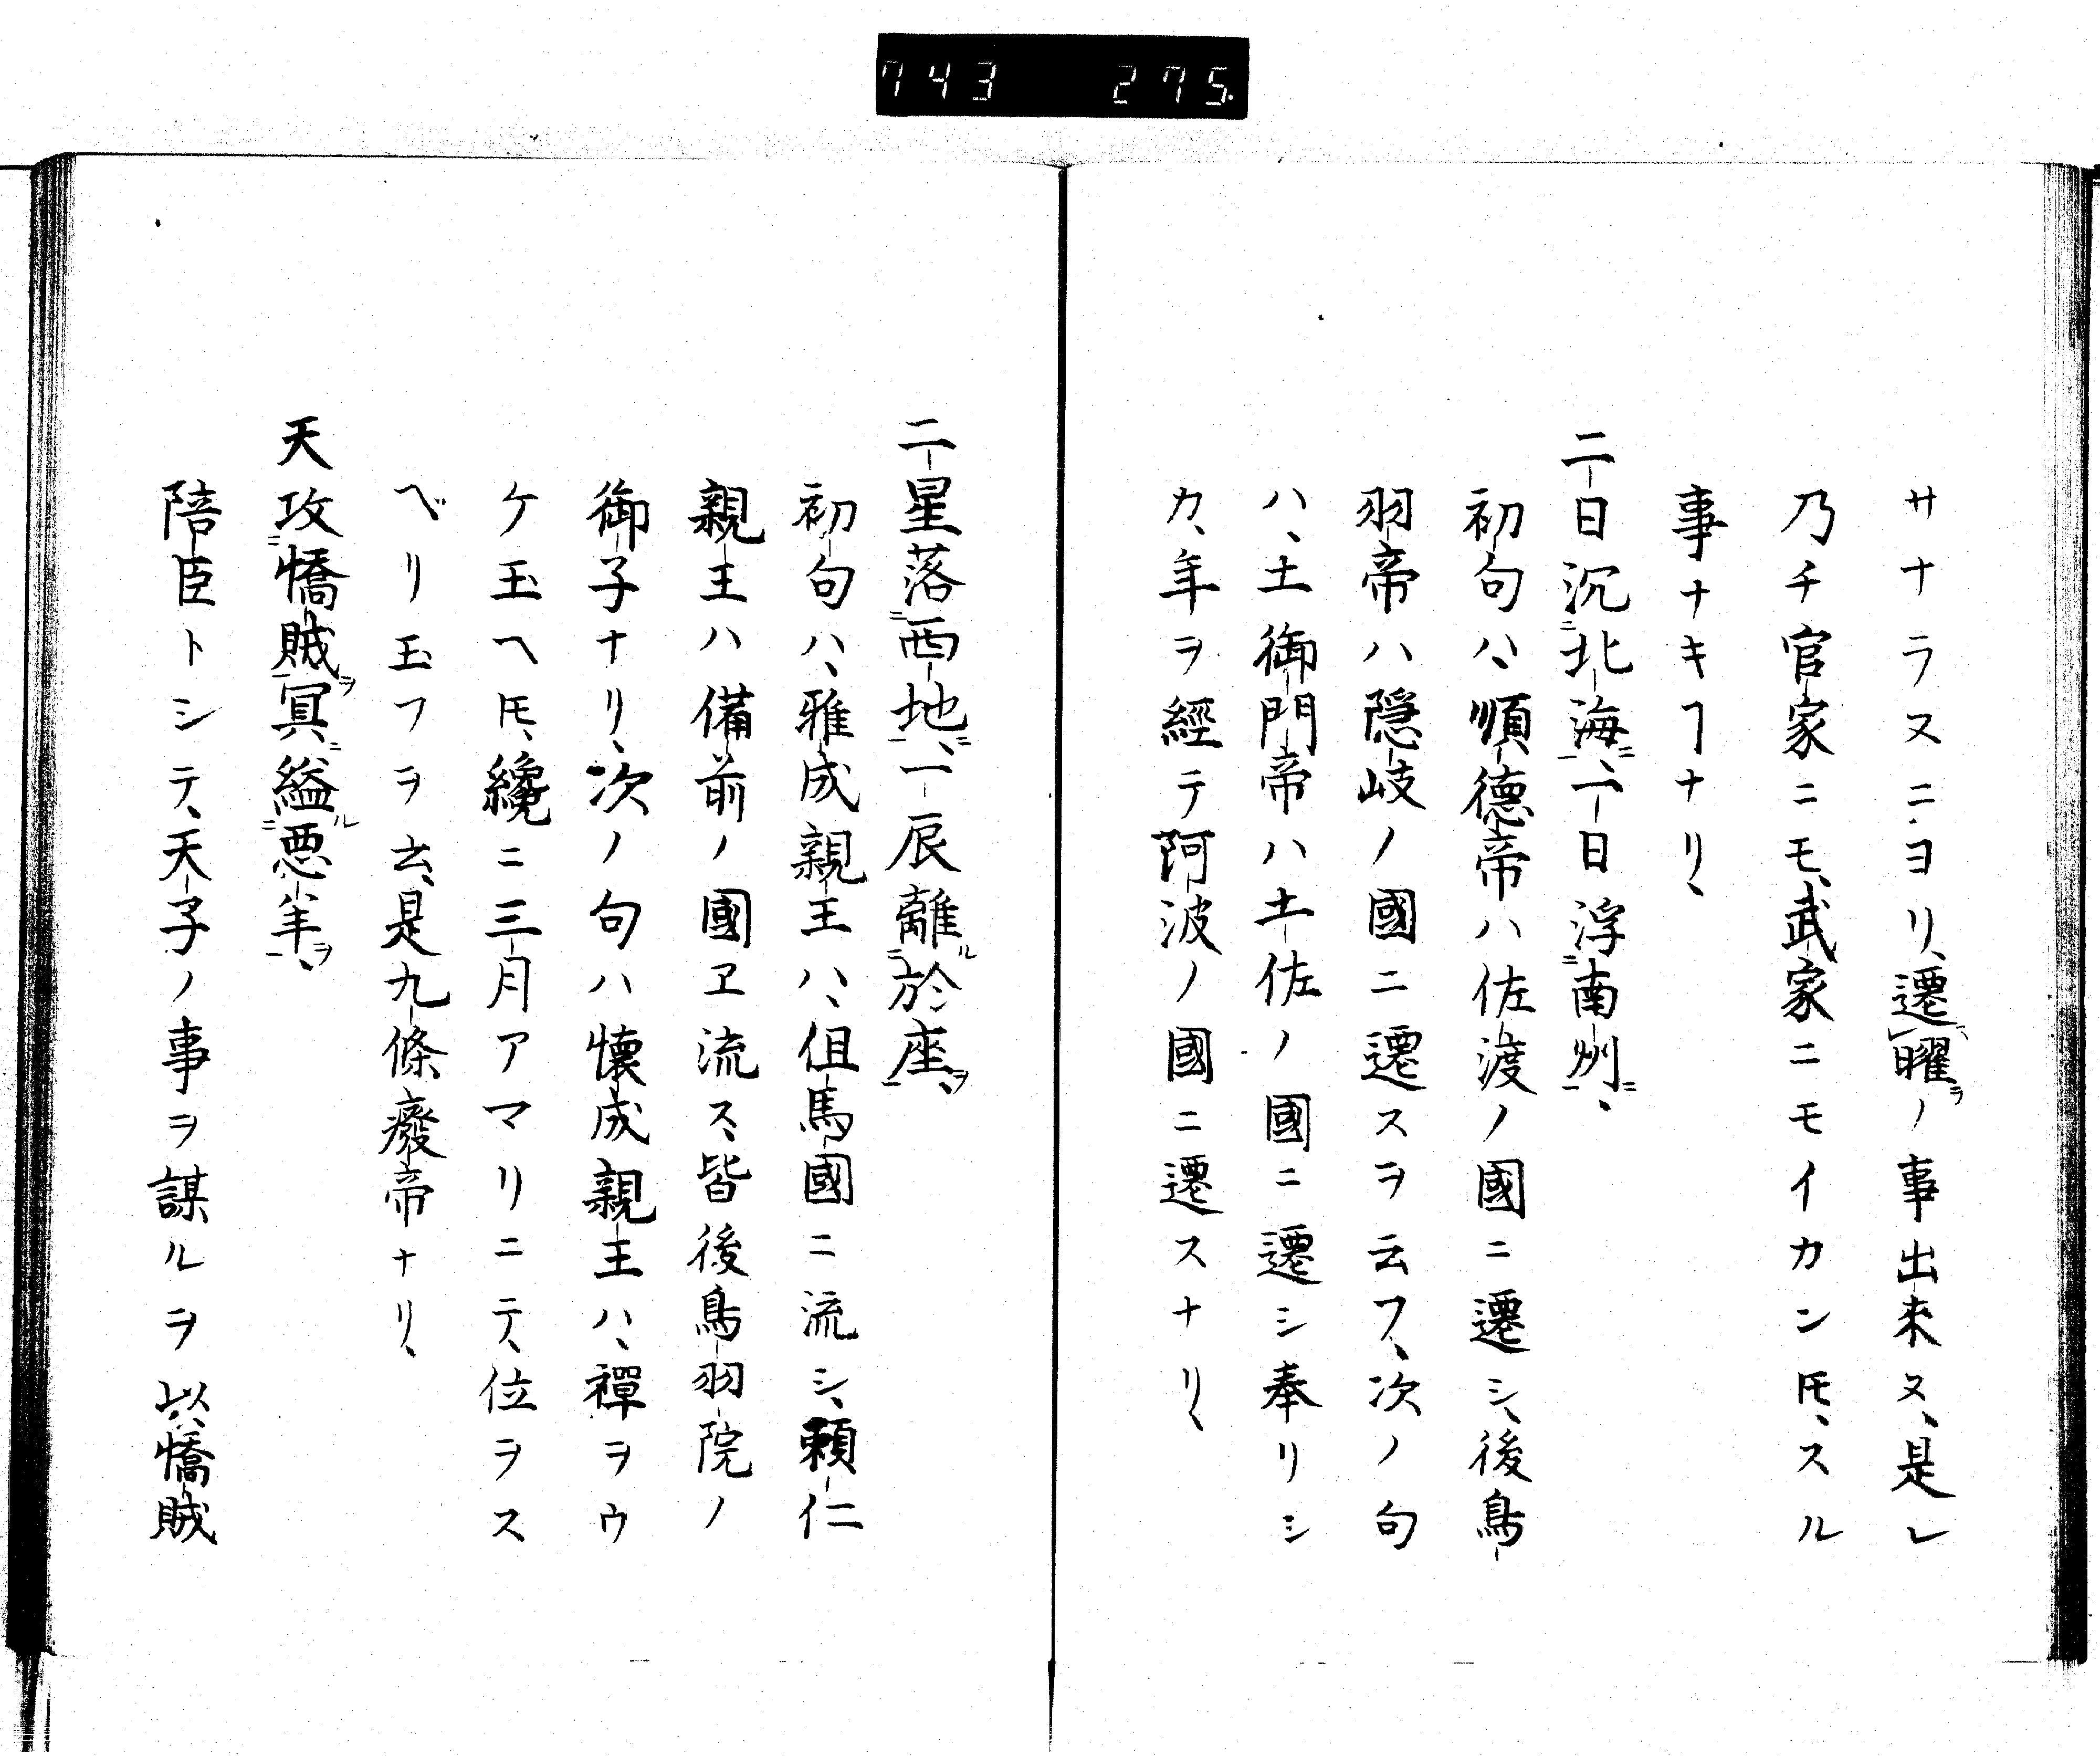 743 275
サナラヌニヨリ、遷曜ノ事出來ヌ、是レ
乃チ官家ニモ、武家ニモイカン𪜈、スル
事ナキヿナリ、
二日沉北海、一日浮南州、
初句ハ、順德帝ハ佐渡ノ國ニ遷シ、後鳥
羽帝ハ隠岐ノ國ニ遷スヲ云フ、次ノ句
ハ、土御門帝ハ土佐ノ國ニ遷シ奉リシ
カ、年ヲ經テ阿波ノ國ニ遷スナリ、
二星落西地、一辰離ル於座ヲ、
初句ハ、雅成親王ハ、伹馬國ニ流シ、頼仁
親王ハ備前ノ國ヱ流ス、皆後鳥羽院ノ
御子ナリ、次ノ句ハ懷成親王ハ、禪ヲウ
ケ玉ヘ𪜈、纔ニ三月アマリニテ、位ヲス
ベリ玉フヲ云、是九條癈帝ナリ、
天攻憍賊ヲ冥縊ル悪牟ヲ、
陪臣トシテ、天子ノ事ヲ謀ルヲ以、憍賊